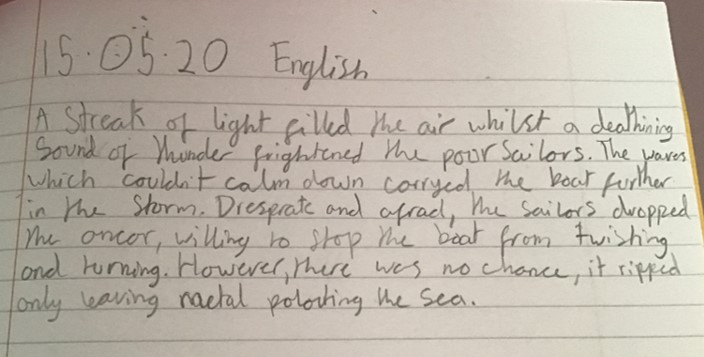 15.05.20 English
A Streak of light filled the air whilst a deathining
Sound of thunder frightened the poor Sailors. The waves
which couldn't calm down carryed the boat further
in the Storm. Diesprate and afrad, the Sailors dropped
the oncor, willing to stop the boat from twisting
and turning. However, there was no chance, it ripped
only leaving maetal poloting the Sea.